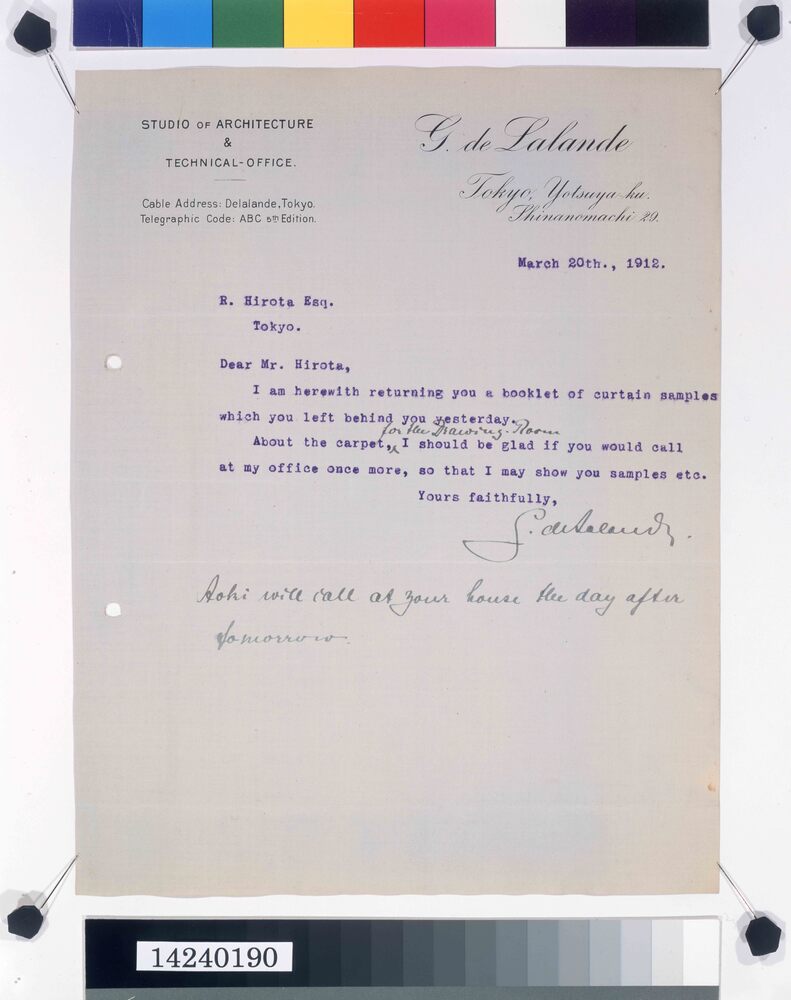 STUDIO OF ARCHITECTURE
&
TECHNICAL-OFFICE.
Cable Address: Delalande, Tokyo.
Telegraphic Code: ABC 5TH Edition.
G. de Lalande
Tokyo, Yotsuya-ku.
Shinanomachi 29.
March 20th., 1912.
R. Hirota Esq.
Tokyo.
Dear Mr. Hirota,
I am herewith returning you a booklet of curtain samples
which you left behind you yesterday.
for the Drawing-Room
About the carpet, I should be glad if you would call
at my office once more, so that I may show you samples etc.
Yours faithfully,
G. de Lalande.
Aoki will call at your house the day after
tomorrow.
14240190